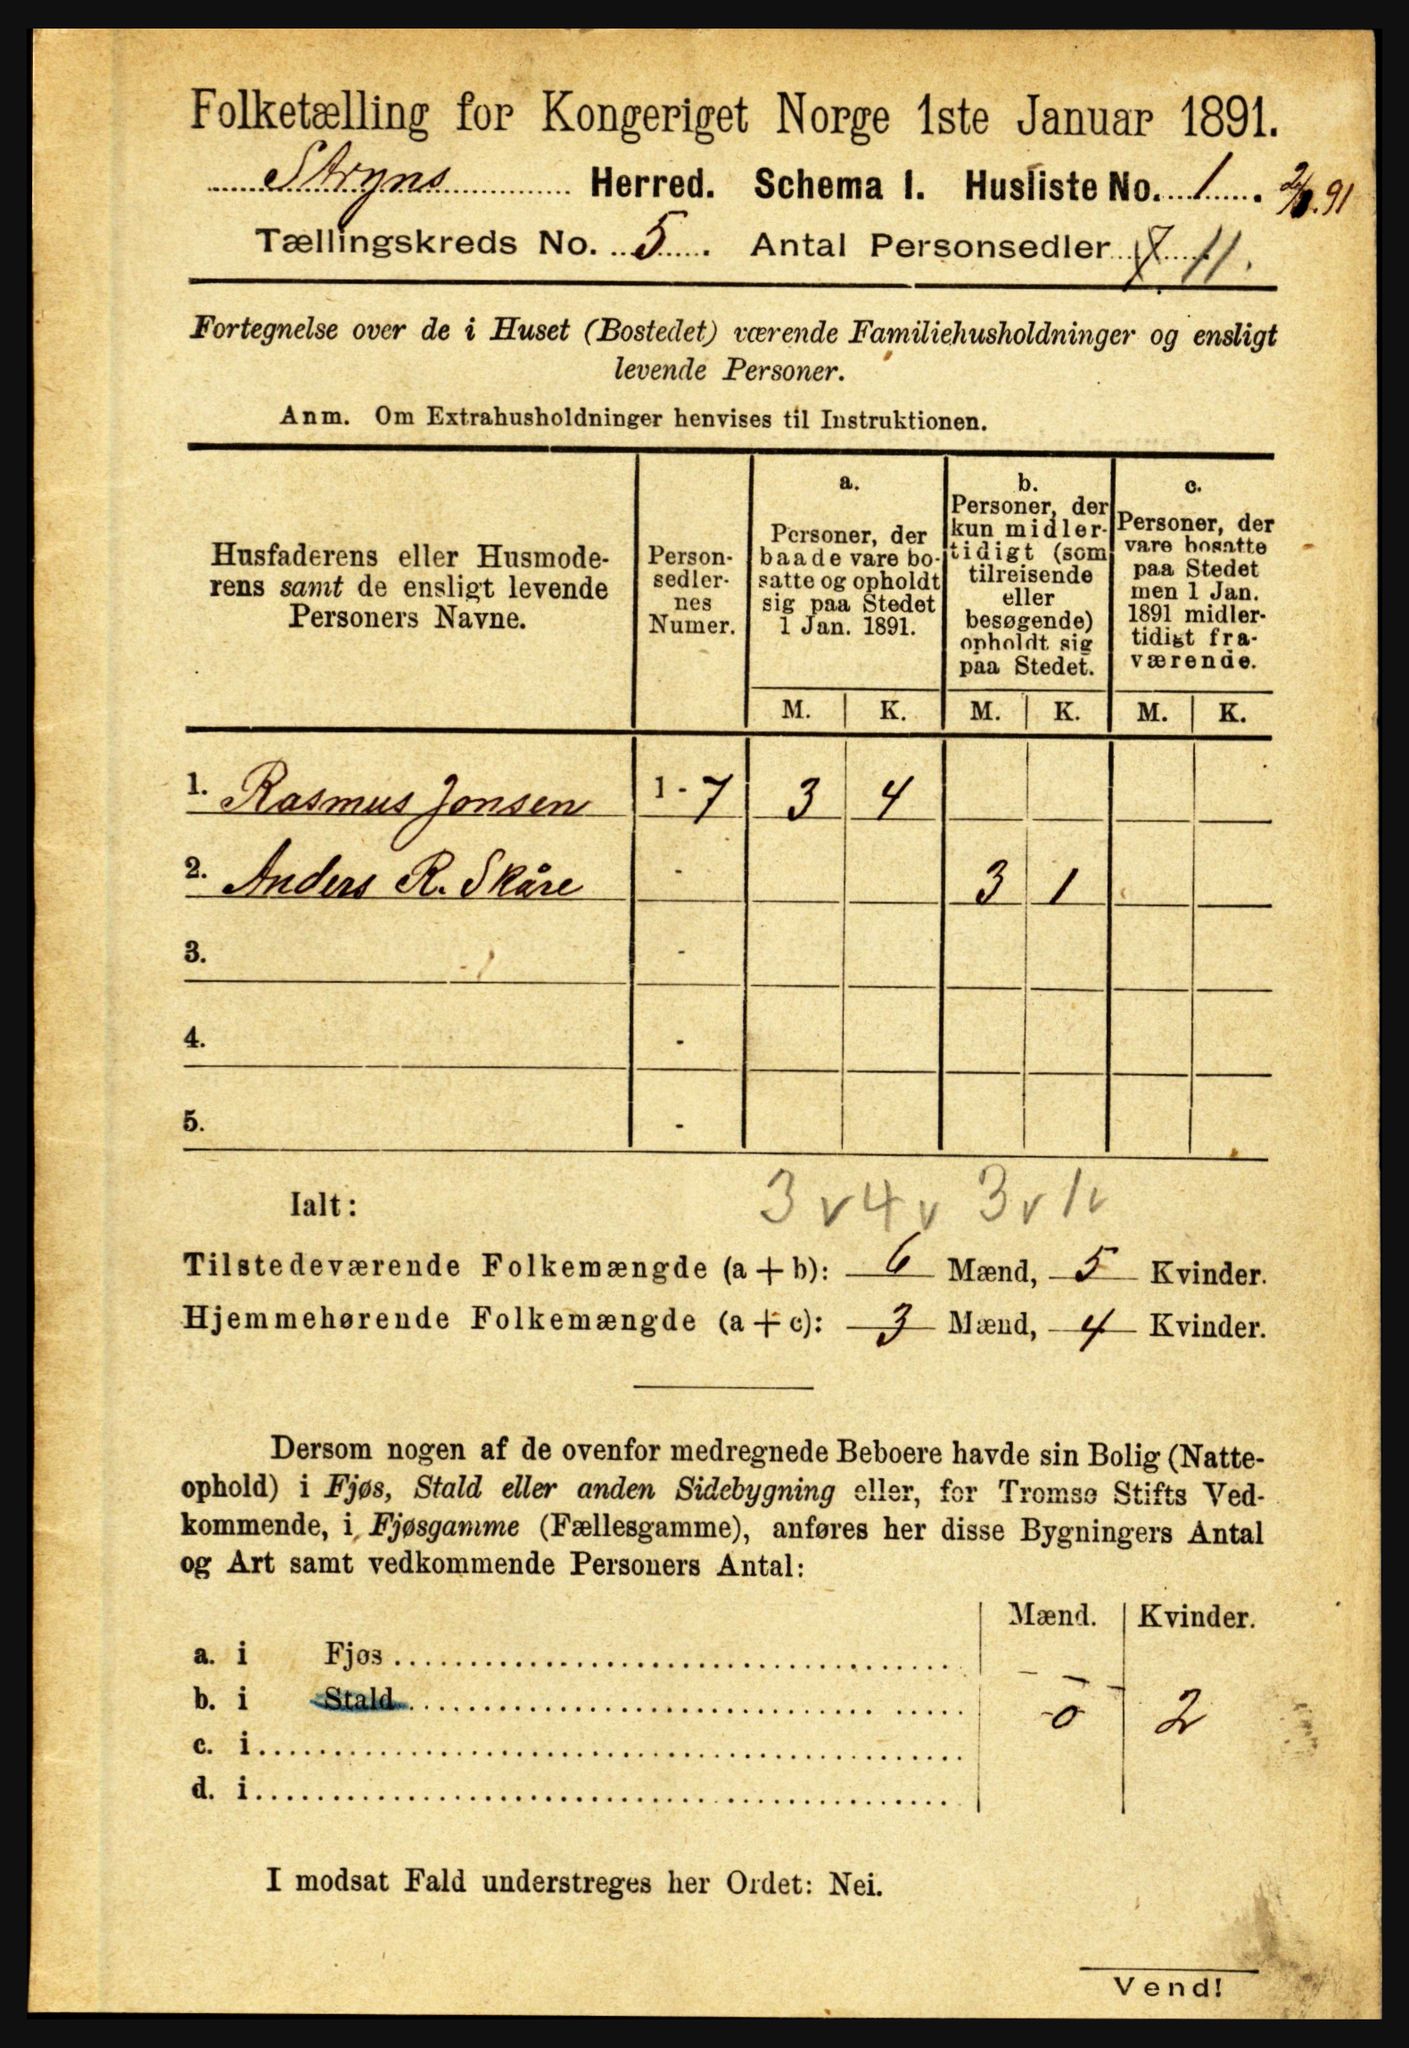 Folketælling for Kongeriget Norge 1ste Januar 1891.
Stryns Herred. Schema I. Husliste No. 1. 2/1.91
Tællingskreds No. 5. Antal Personsedler 7 11.
Fortegnelse over de i Huset (Bostedet) værende Familiehusholdninger og ensligt
levende Personer.
Anm. Om Extrahusholdninger henvises til Instruktionen.
Husfaderens eller Husmode-
rens samt de ensligt levende
Personers Navne.
Person-
sedler-
nes
Numer.
a.
Personer, der
baade vare bo-
satte og opholdt
sig paa Stedet
1 Jan. 1891.
b.
Personer, der
kun midler-
tidigt (som
tilreisende
eller
besøgende)
opholdt sig
paa Stedet.
c.
Personer, der
vare bosatte
paa Stedet
men 1 Jan.
1891 midler-
tidigt fra-
værende.
M. K. M. K. M. K.
1. Rasmus Jonsen 1 - 7 3 4
2. Anders R. Skåre - 3 1
3. -
4. -
5. -
Ialt: 3 v 4 v 3 v 1 v
Tilstedeværende Folkemængde (a + b): 6 Mænd, 5 Kvinder.
Hjemmehørende Folkemængde (a + c): 3 Mænd, 4 Kvinder.
Dersom nogen af de ovenfor medregnede Beboere havde sin Bolig (Natte-
ophold) i Fjøs, Stald eller anden Sidebygning eller, for Tromsø Stifts Ved-
kommende, i Fjøsgamme (Fællesgamme), anføres her disse Bygningers Antal
og Art samt vedkommende Personers Antal:
Mænd. Kvinder.
a. i Fjøs - -
b. i Stald - o 2
c. i
d. i
I modsat Fald understreges her Ordet: Nei.
Vend!